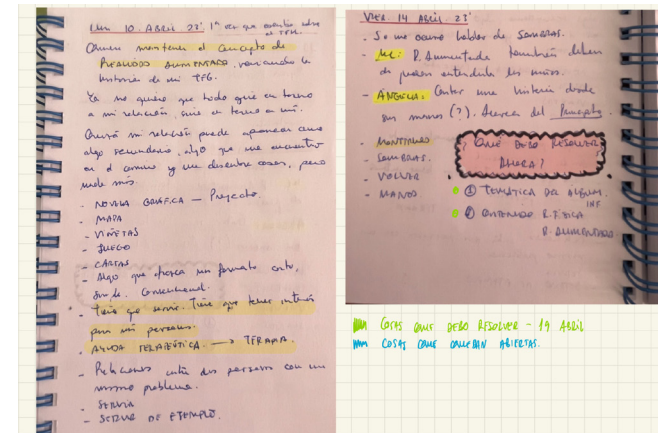 Lun 10. ABRIL 23' 1ª vez que escribo sobre
el TFM.
Quiero mantener el concepto de
REALIDAD AUMENTADA, variando la
historia de mi TFG.
Ya no quiero que todo gire en torno
a mi relación, gire en torno a mi.
Quizá mi relación puede aparecer como
algo secundario, algo que me encuentro
en el camino y me descubre cosas, pero
nada más.
- NOVELA GRÁFICA — Proyecto.
- MAPA
- VIÑETAS
- JUEGO
- CARTAS
- Algo que ofrezca un formato corto,
Conceptual.
- Tiene que servir. Tiene que tener interés
para mi persona.
- AYUDA TERAPEÚTICA. → TERAPIA.
- Relaciones entre dos personas con un
mismo problema.
- SERVIR
- SERVIR DE EJEMPLO.
VIER. 14 ABRIL. 23'
- Se me ocurre hablar de SOMBRAS.
- R. Aumentada también deben
de poder entenderla los niños.
- ÁNGELA: Contar una historia desde
sus manos (?). Acerca del
- MONTIRUEO
- SOMBRAS.
- VOLVER
- MANOS.
¿QUÉ DEBO RESOLVER
AHORA?
① TEMÁTICA DEL ÁLBUM.
INF.
② CONTENIDO R. FÍSICA
R. AUMENTADA
COSAS QUE DEBO RESOLVER - 19 ABRIL
COSAS QUE QUEDAN ABIERTAS.